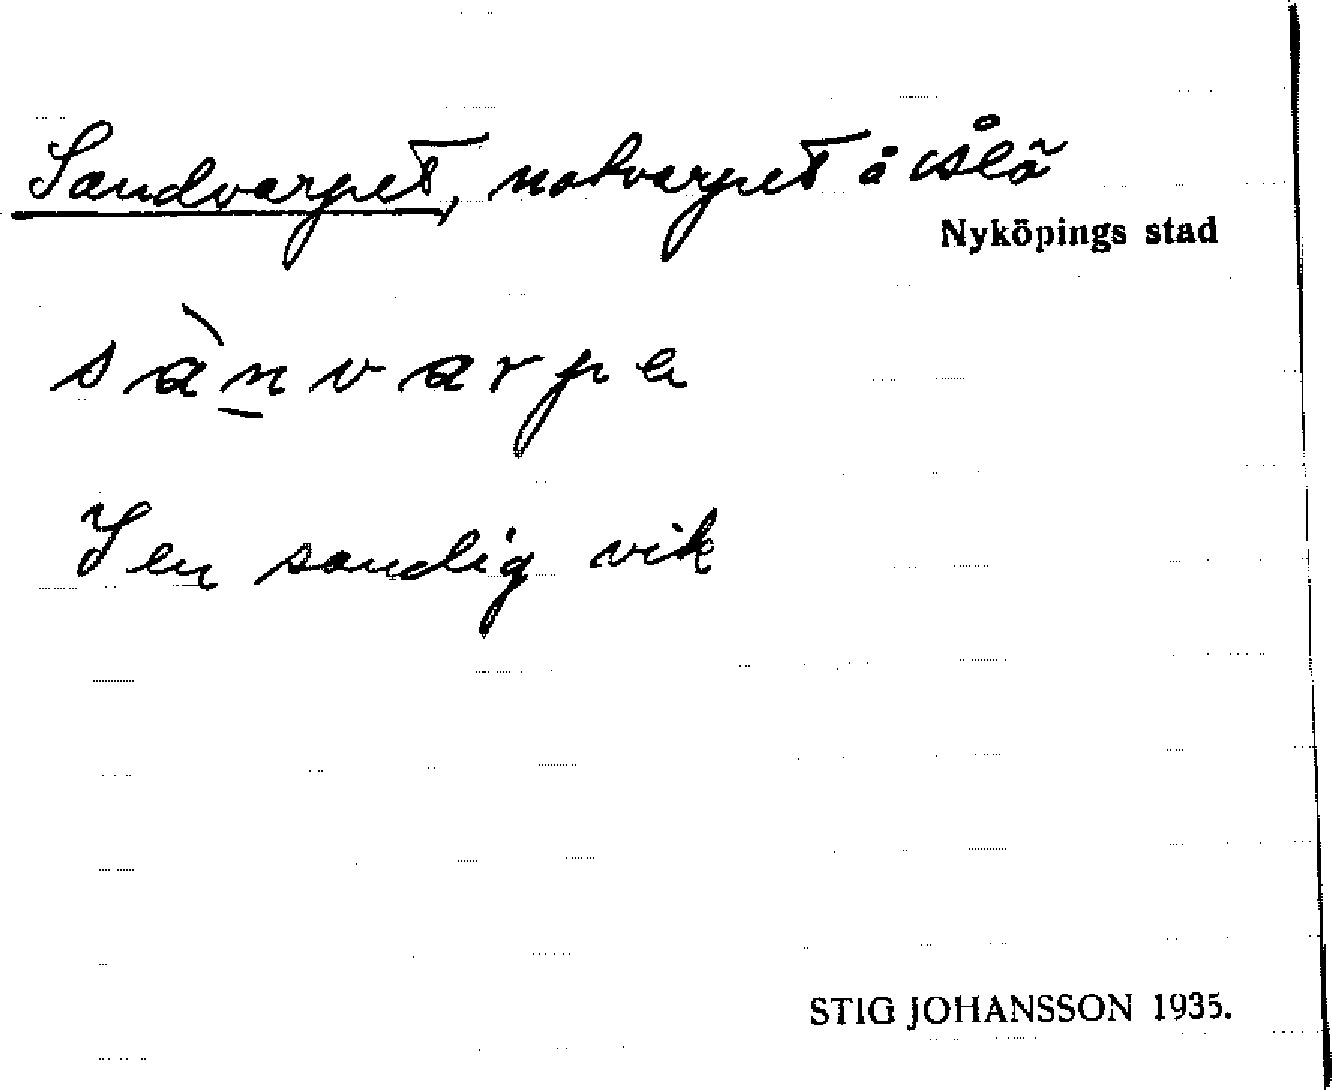 Sandvarpet, notvarpet å Åslö
Nyköpings stad
sànvarpa
I en sandig vik
STIG JOHANSSON 1935.